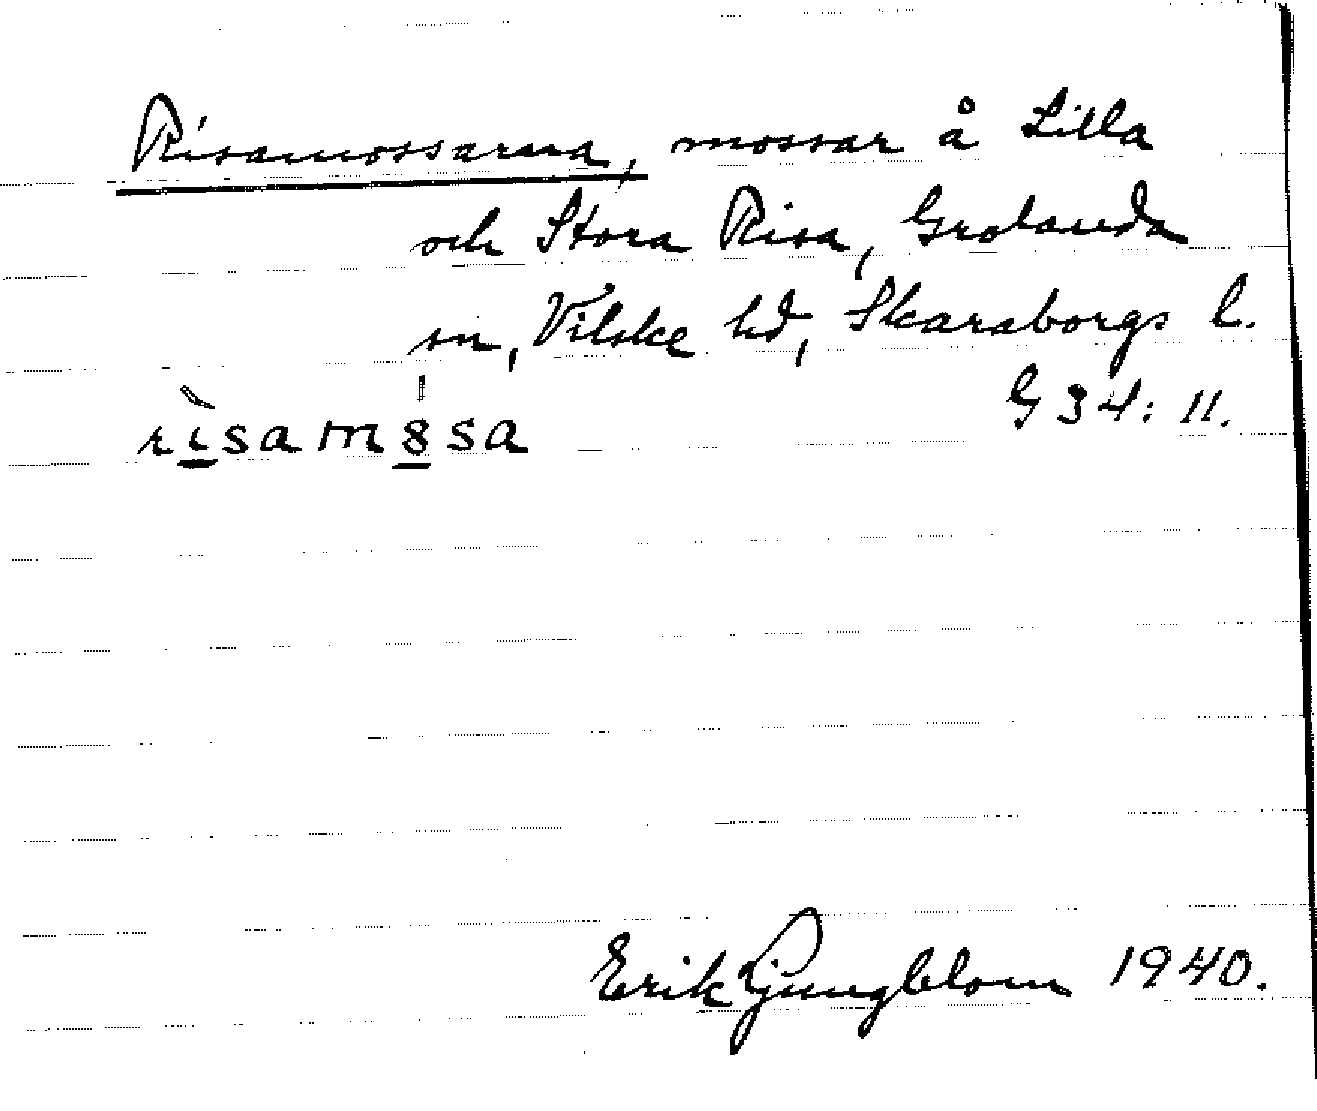 Risamossarna, mossar å Lilla
och Stora Risa, Grolanda
sn, Vilske hd, Skaraborgs l.
G 34: 11.
rìsam8sa
Erik Ljungblom 1940.